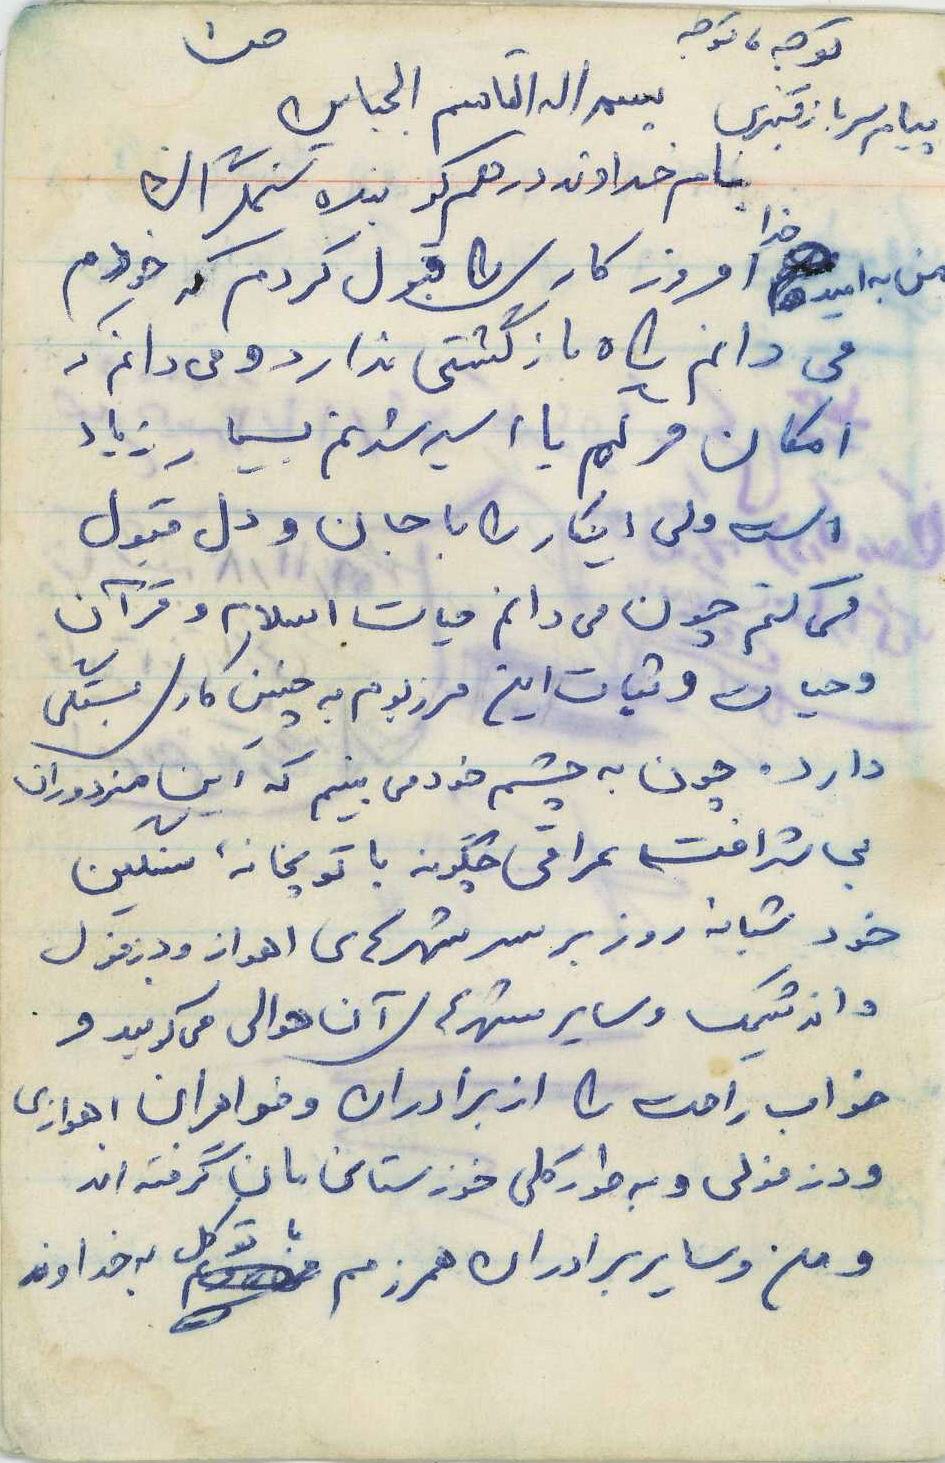 توجه، توجه ص۱
پیام سرباز قنبری بسم اله القاسم الجبارین
بنام خداوند درهم کو بنده ستمگران
من به امید خدا امروز کاری را قبول کردم که خودم
می دانم راه بازگشتی ندارد و می دانم که
امکان مرگم یا اسیر شدنم بسیار زیاد
است ولی اینکار را با جان و دل قبول
می کنم چون می دانم حیات اسلام و قرآن
و حیات و ثبات این مرزبوم به چنین کاری بستگی
دارد. چون به چشم خود می بینم که این مزدوران
بی شرافت عراقی چگونه با توپخانهٔ سنگین
خود شبانه روز بر سر شهرهای اهواز و دزفول
و اندیمشک و سایر شهرهای آن حوالی می کوبید و
خواب راحت را از برادران و خواهران اهوازی
و دزفولی و به طور کلی خوزستانی مان گرفته اند
و من و سایر برادران همرزمم با توکل به خداوند